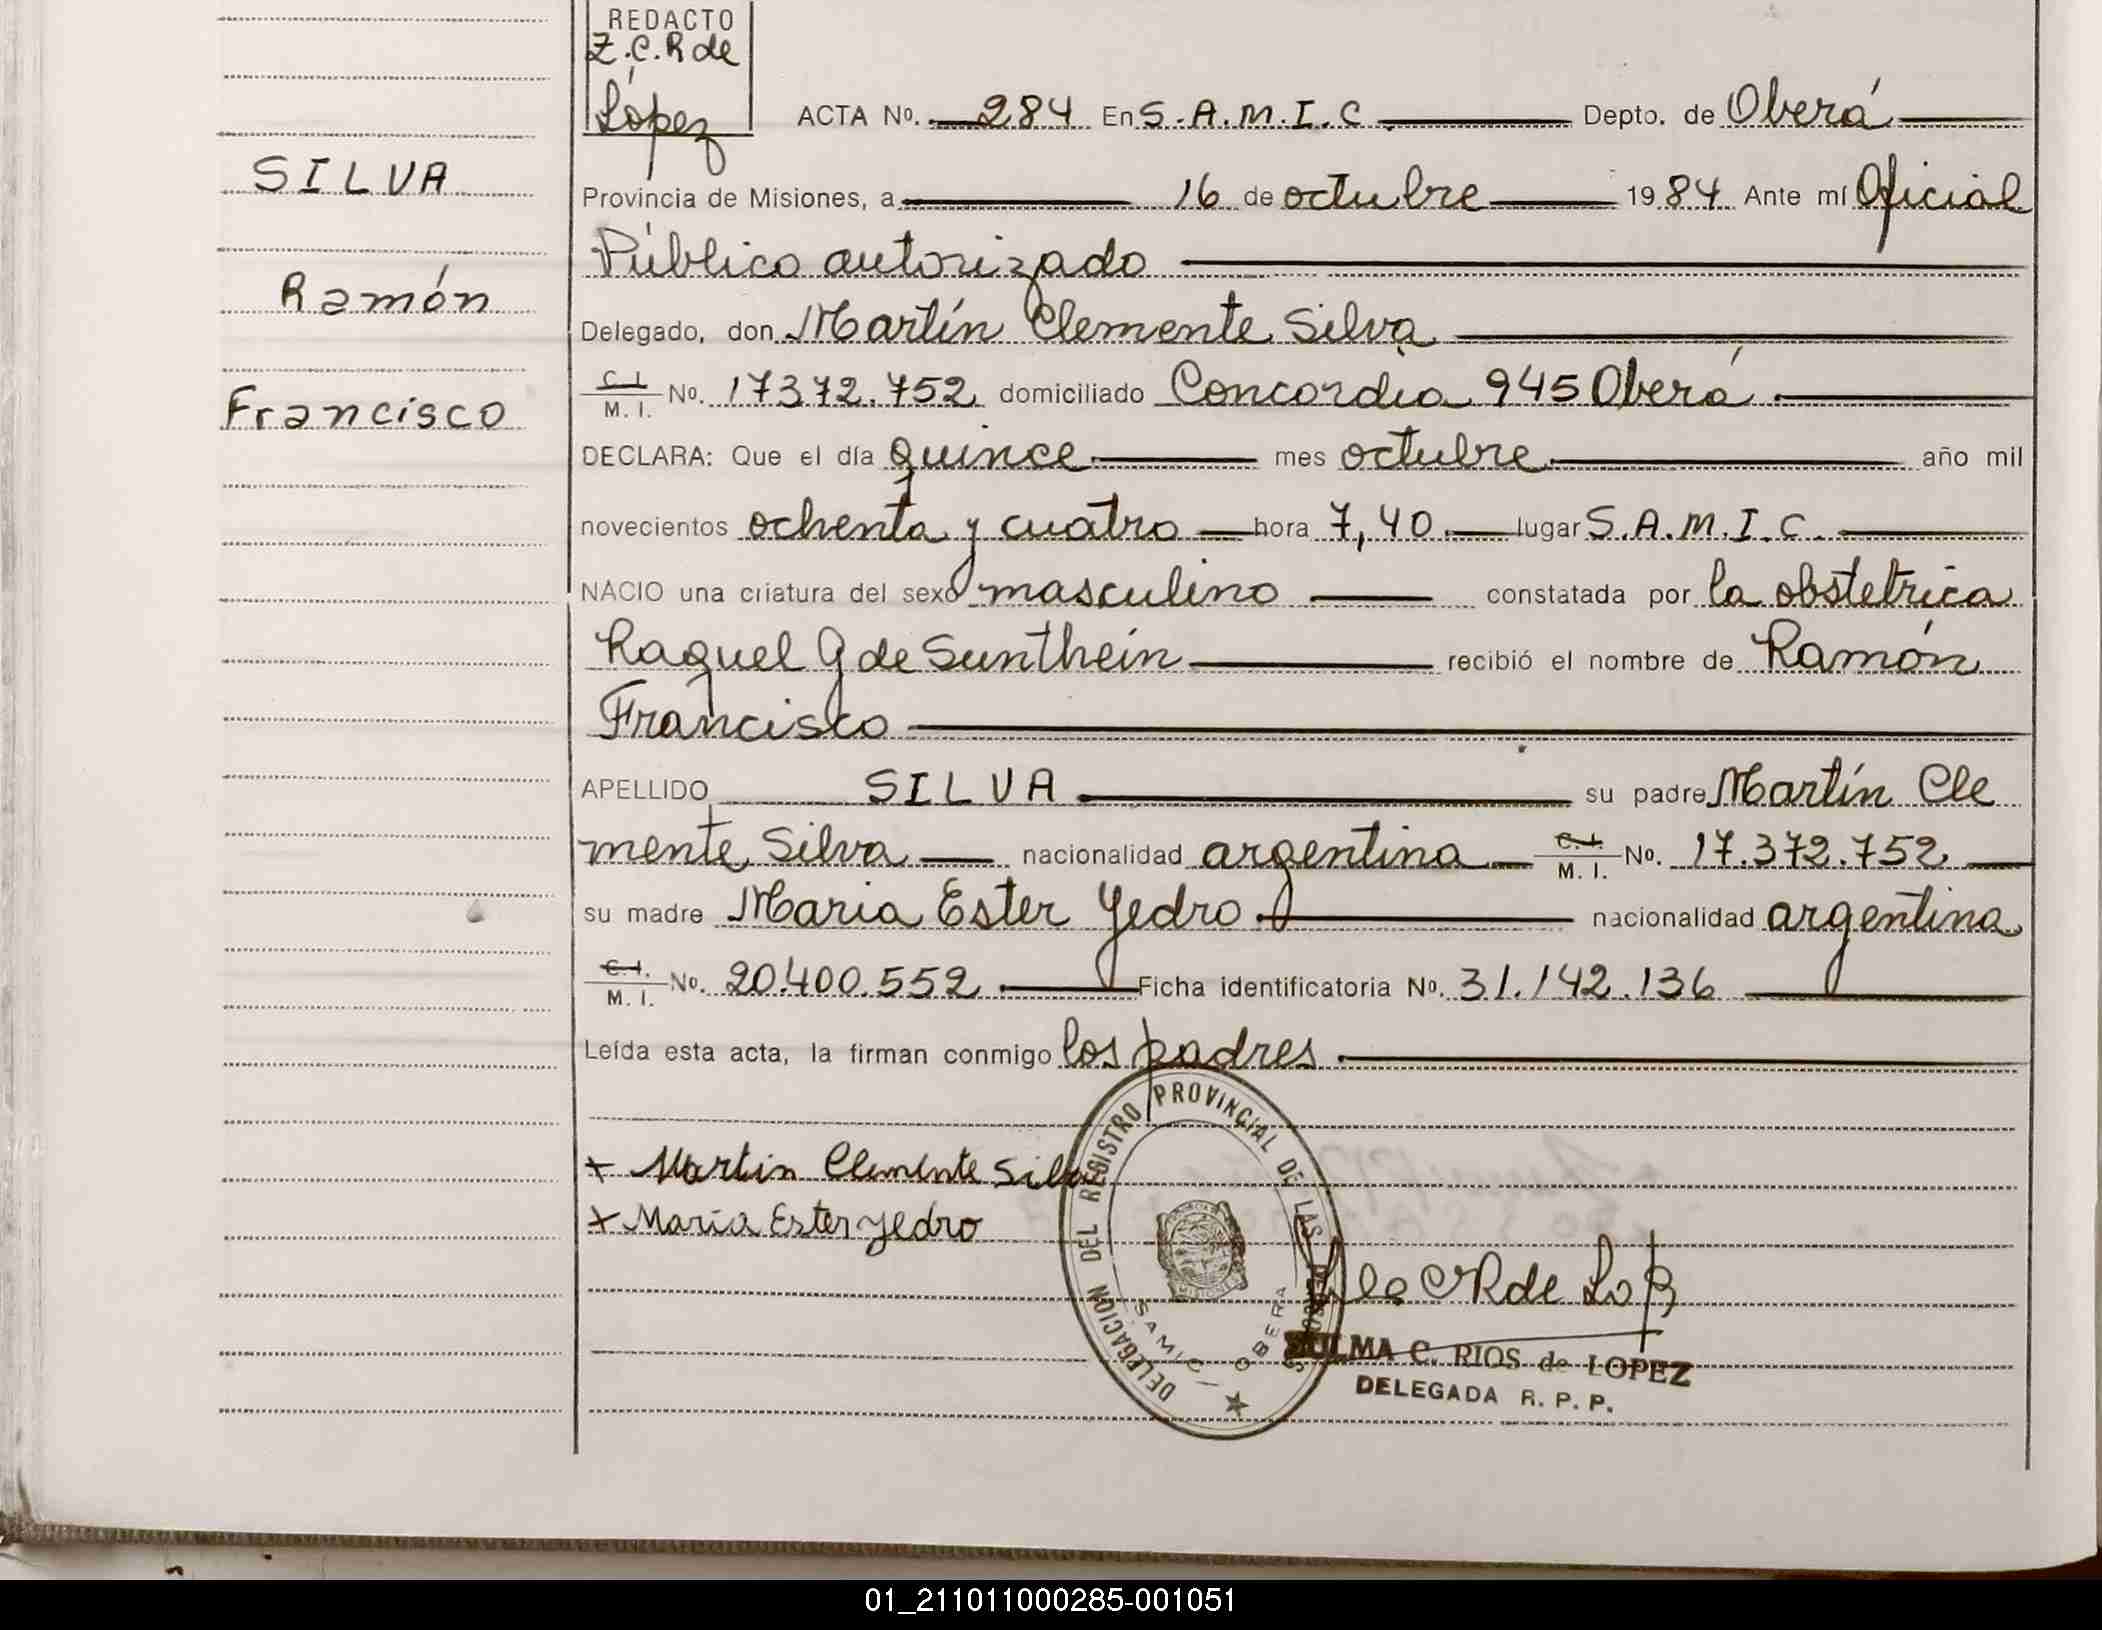 REDACTO
Z.C.R de
López
ACTA Nº. 284 En S.A.M.I.C. Depto. de Oberá
SILVA
Provincia de Misiones, a 16 de octubre 1984 Ante mí Oficial
Público autorizado
Ramón
Delegado, don Martín Clemente Silva
C.I. M.I. No. 17372.752 domiciliado Concordia 945 Oberá.
Francisco
DECLARA: Que el día quince mes octubre año mil
novecientos ochenta y cuatro hora 7,40 lugar S.A.M.I.C.
NACIO una criatura del sexo masculino constatada por la obstetrica
Raquel G de Sunthein recibió el nombre de Ramón
Francisco
APELLIDO SILVA su padre Martín Cle
mente Silva nacionalidad argentina C.I. M.I. No. 17.372.752
su madre Maria Ester Yedro nacionalidad argentina
C.I. M.I. No. 20.400.552 Ficha identificatoria No. 31.142.136
Leída esta acta, la firman conmigo los padres
+ Martin Clemente Silva
+ Maria Ester Yedro
DELEGACION DEL REGISTRO PROVINCIAL DE LAS
SAMIC - OBERA
C R de López
ZULMA C. RIOS de LOPEZ
DELEGADA R. P. P.
01_211011000285-001051